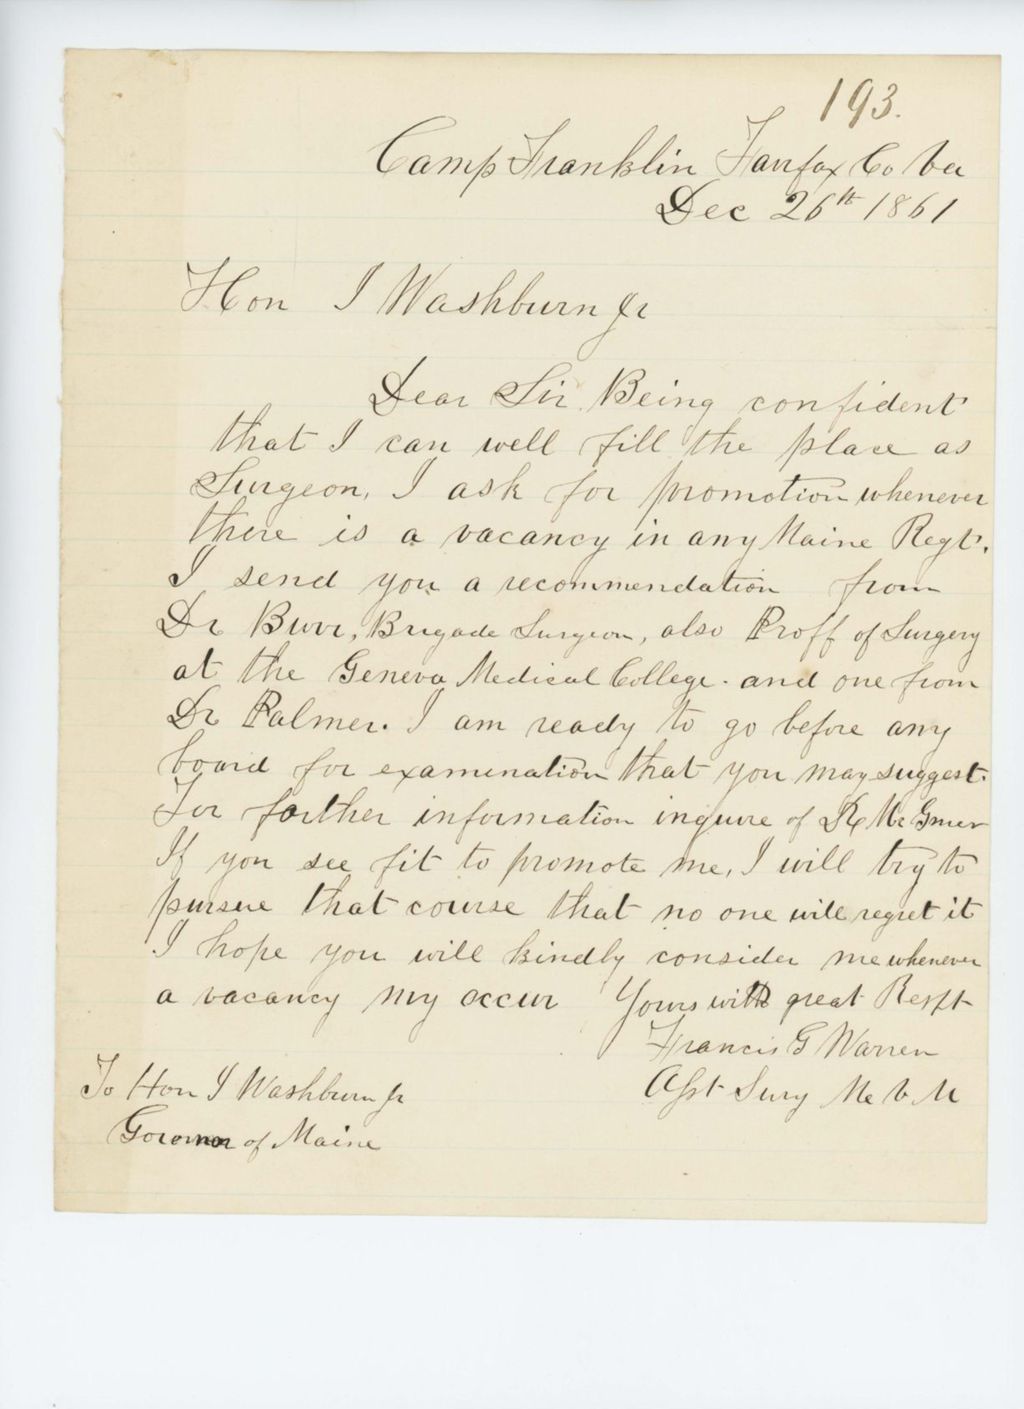 193.
Camp Franklin Fairfax Co Va
Dec 26th 1861
Hon I Washburn Jr
Dear Sir. Being confident
that I can well fill the place as
Surgeon, I ask for promotion whenever
there is a vacancy in any Maine Regt.
I send you a recommendation from
Dr Burr, Brigade Surgeon, also Proff of Surgery
at the Geneva Medical College. and one from
Dr Palmer. I am ready to go before any
board for examination that you may suggest.
For farther information inquire of
If you see fit to promote me, I will try to
pursue that course that no one will regret it
I hope you will kindly consider me whenever
a vacancy my occur Yours with great Respt
Francis G Warren
Asst Surg Me V M
To Hon I Washburn Jr
Governor of Maine